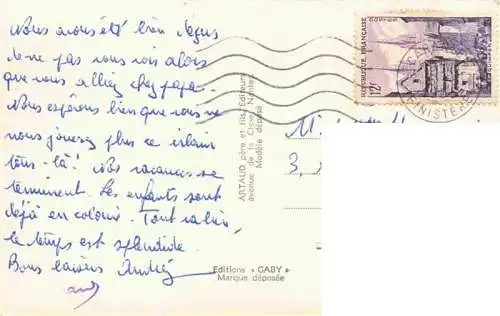 Nous avons été bien déçus
de ne pas vous voir alors
que vous alliez chez papa.
Nous espérons bien que vous ne
nous jouerez plus ce
tour-là! Nos vacances se
terminent. Les enfants sont
déjà en colonie. Tout va bien,
le temps est splendide.
Bons baisers André
Editions « GABY »
Marque déposée
ARTAUD père et fils, Editeurs
avenue de la Close, Nantes
Modèle déposé
M.
3,
REPUBLIQUE FRANÇAISE
12F
FINISTÈRE